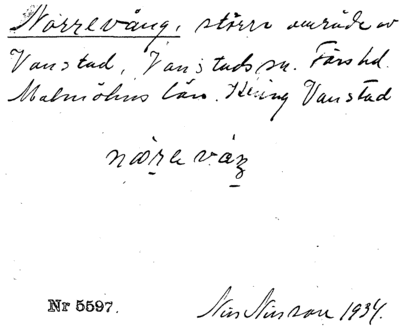 Norrevång, större område av
Vanstad, Vanstads sn. Färs hd.
Malmöhus län. Kring Vanstad
nώre váŋ
Nr 5597.
Nils Nilsson 1934.